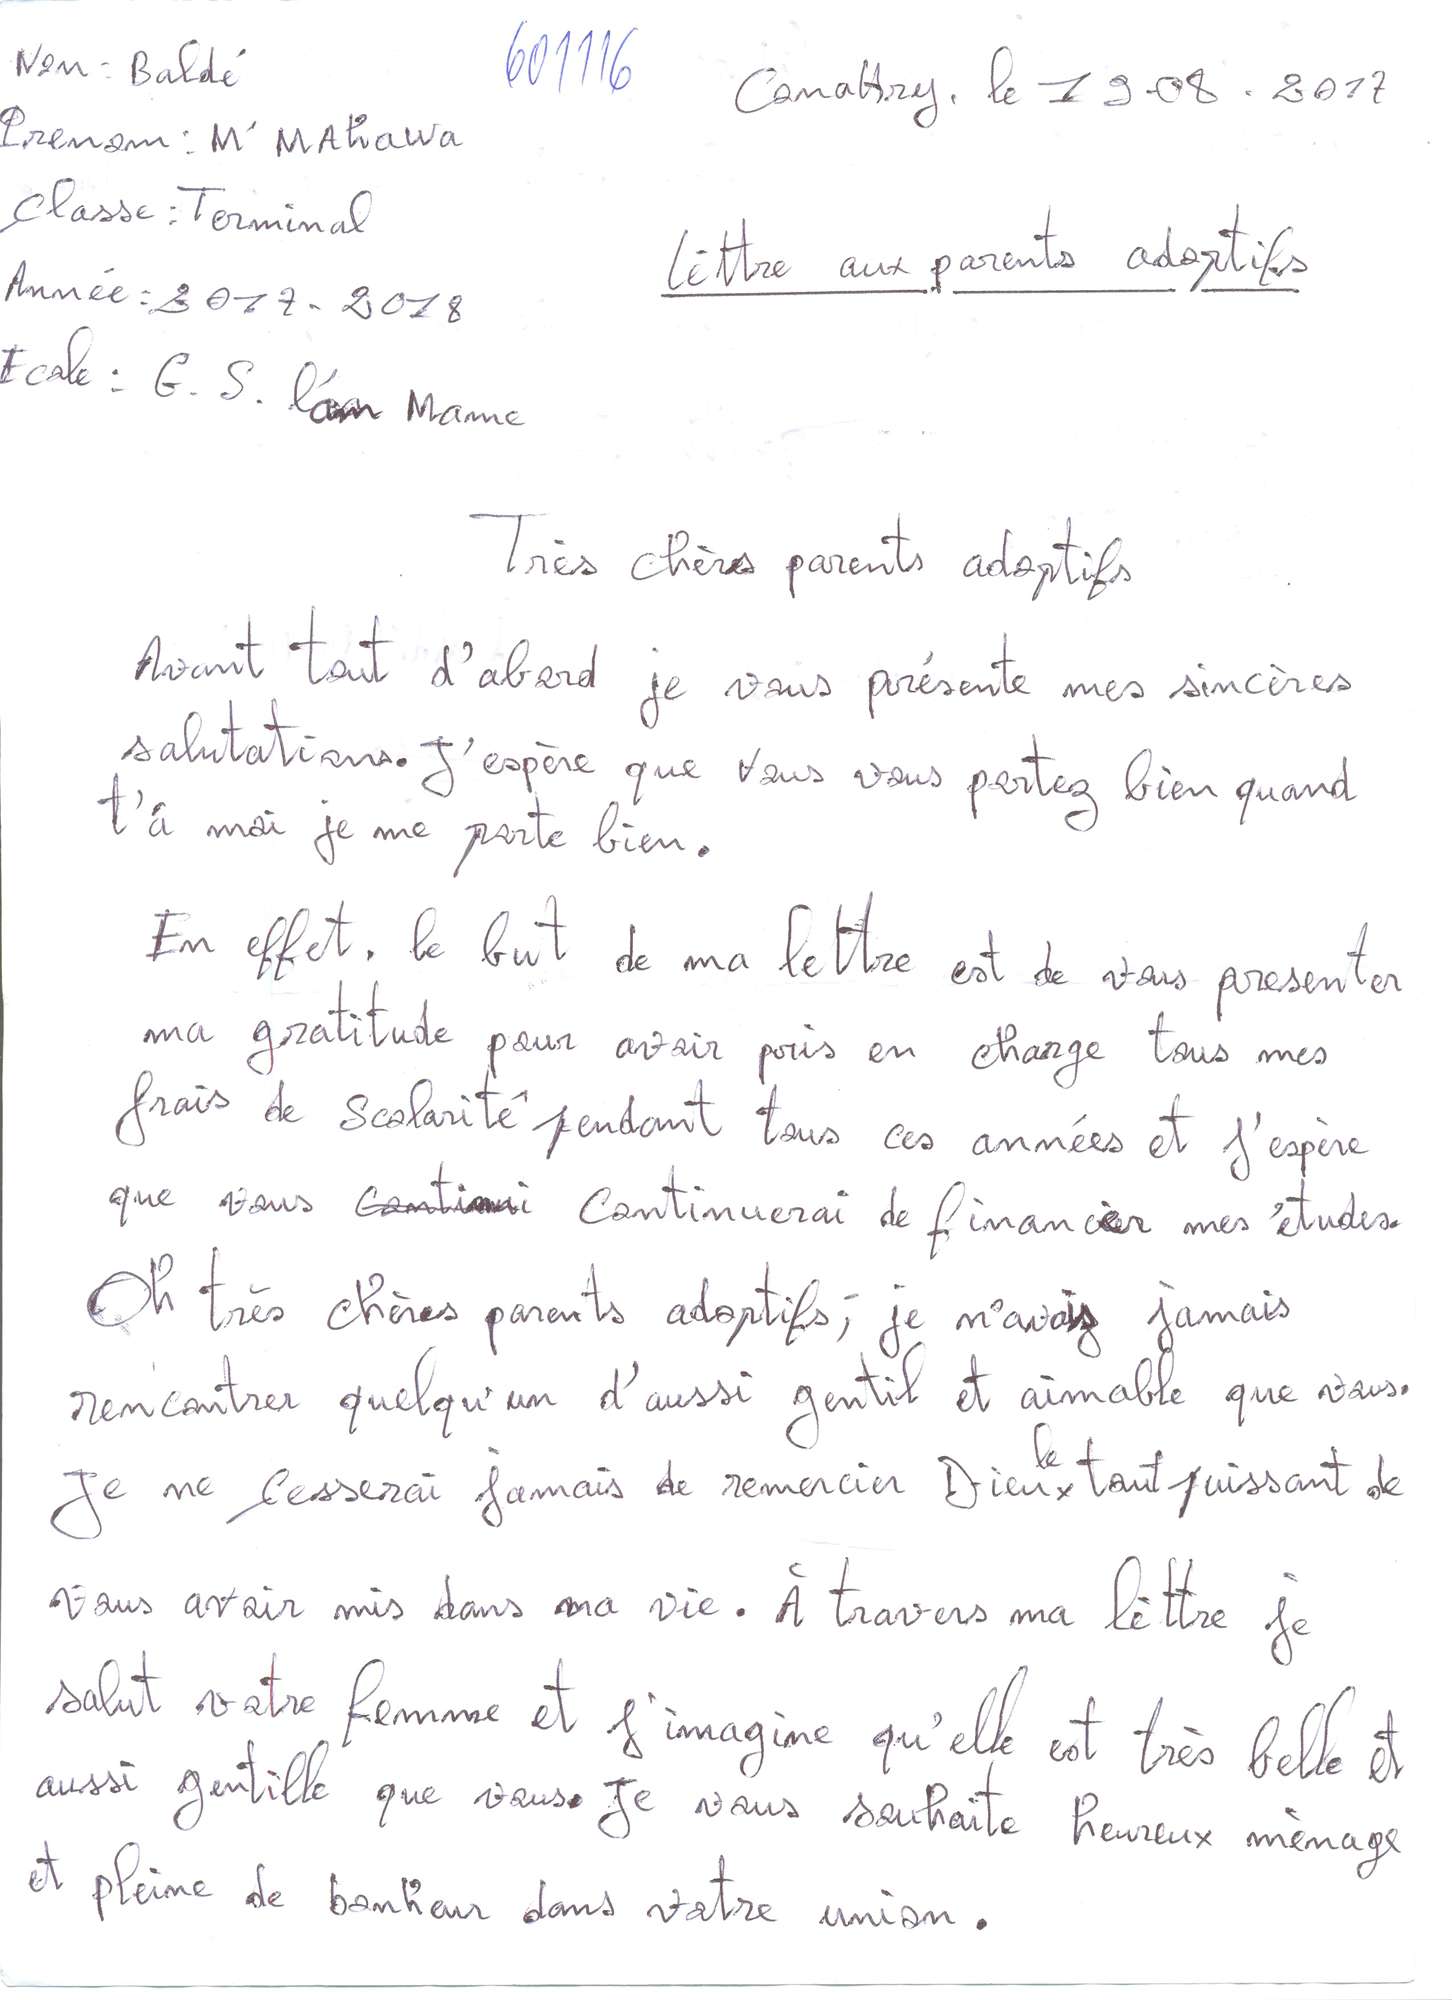 Nom : Baldé
601116
Conakry, le 19-08-2017
Prenom : M' MAhawa
Classe : Terminal
Lèttre aux parents adoptifs
Année : 2017-2018
Ecole : G. S. Mame
Très chères parents adoptifs
Avant tout d'abord je vous présente mes sincères
salutations. J'espère que vous vous portez bien quand
t'â moi je me porte bien.
En effet, le but de ma lettre est de vous presenter
ma gratitude pour avoir pris en charge tous mes
frais de Scolarité pendant tous ces années et j'espère
que vous continuerai de financer mes études.
Oh très chères parents adoptifs; je n'avais jamais
rencontrer quelqu'un d'aussi gentil et aimable que vous.
Je ne cesserai jamais de remercier Dieux le tout puissant de
vous avoir mis dans ma vie. À travers ma lèttre je
salut votre femme et j'imagine qu'elle est très belle et
aussi gentille que vous. Je vous souhaite heureux mènage
et pleine de bonheur dans votre union.